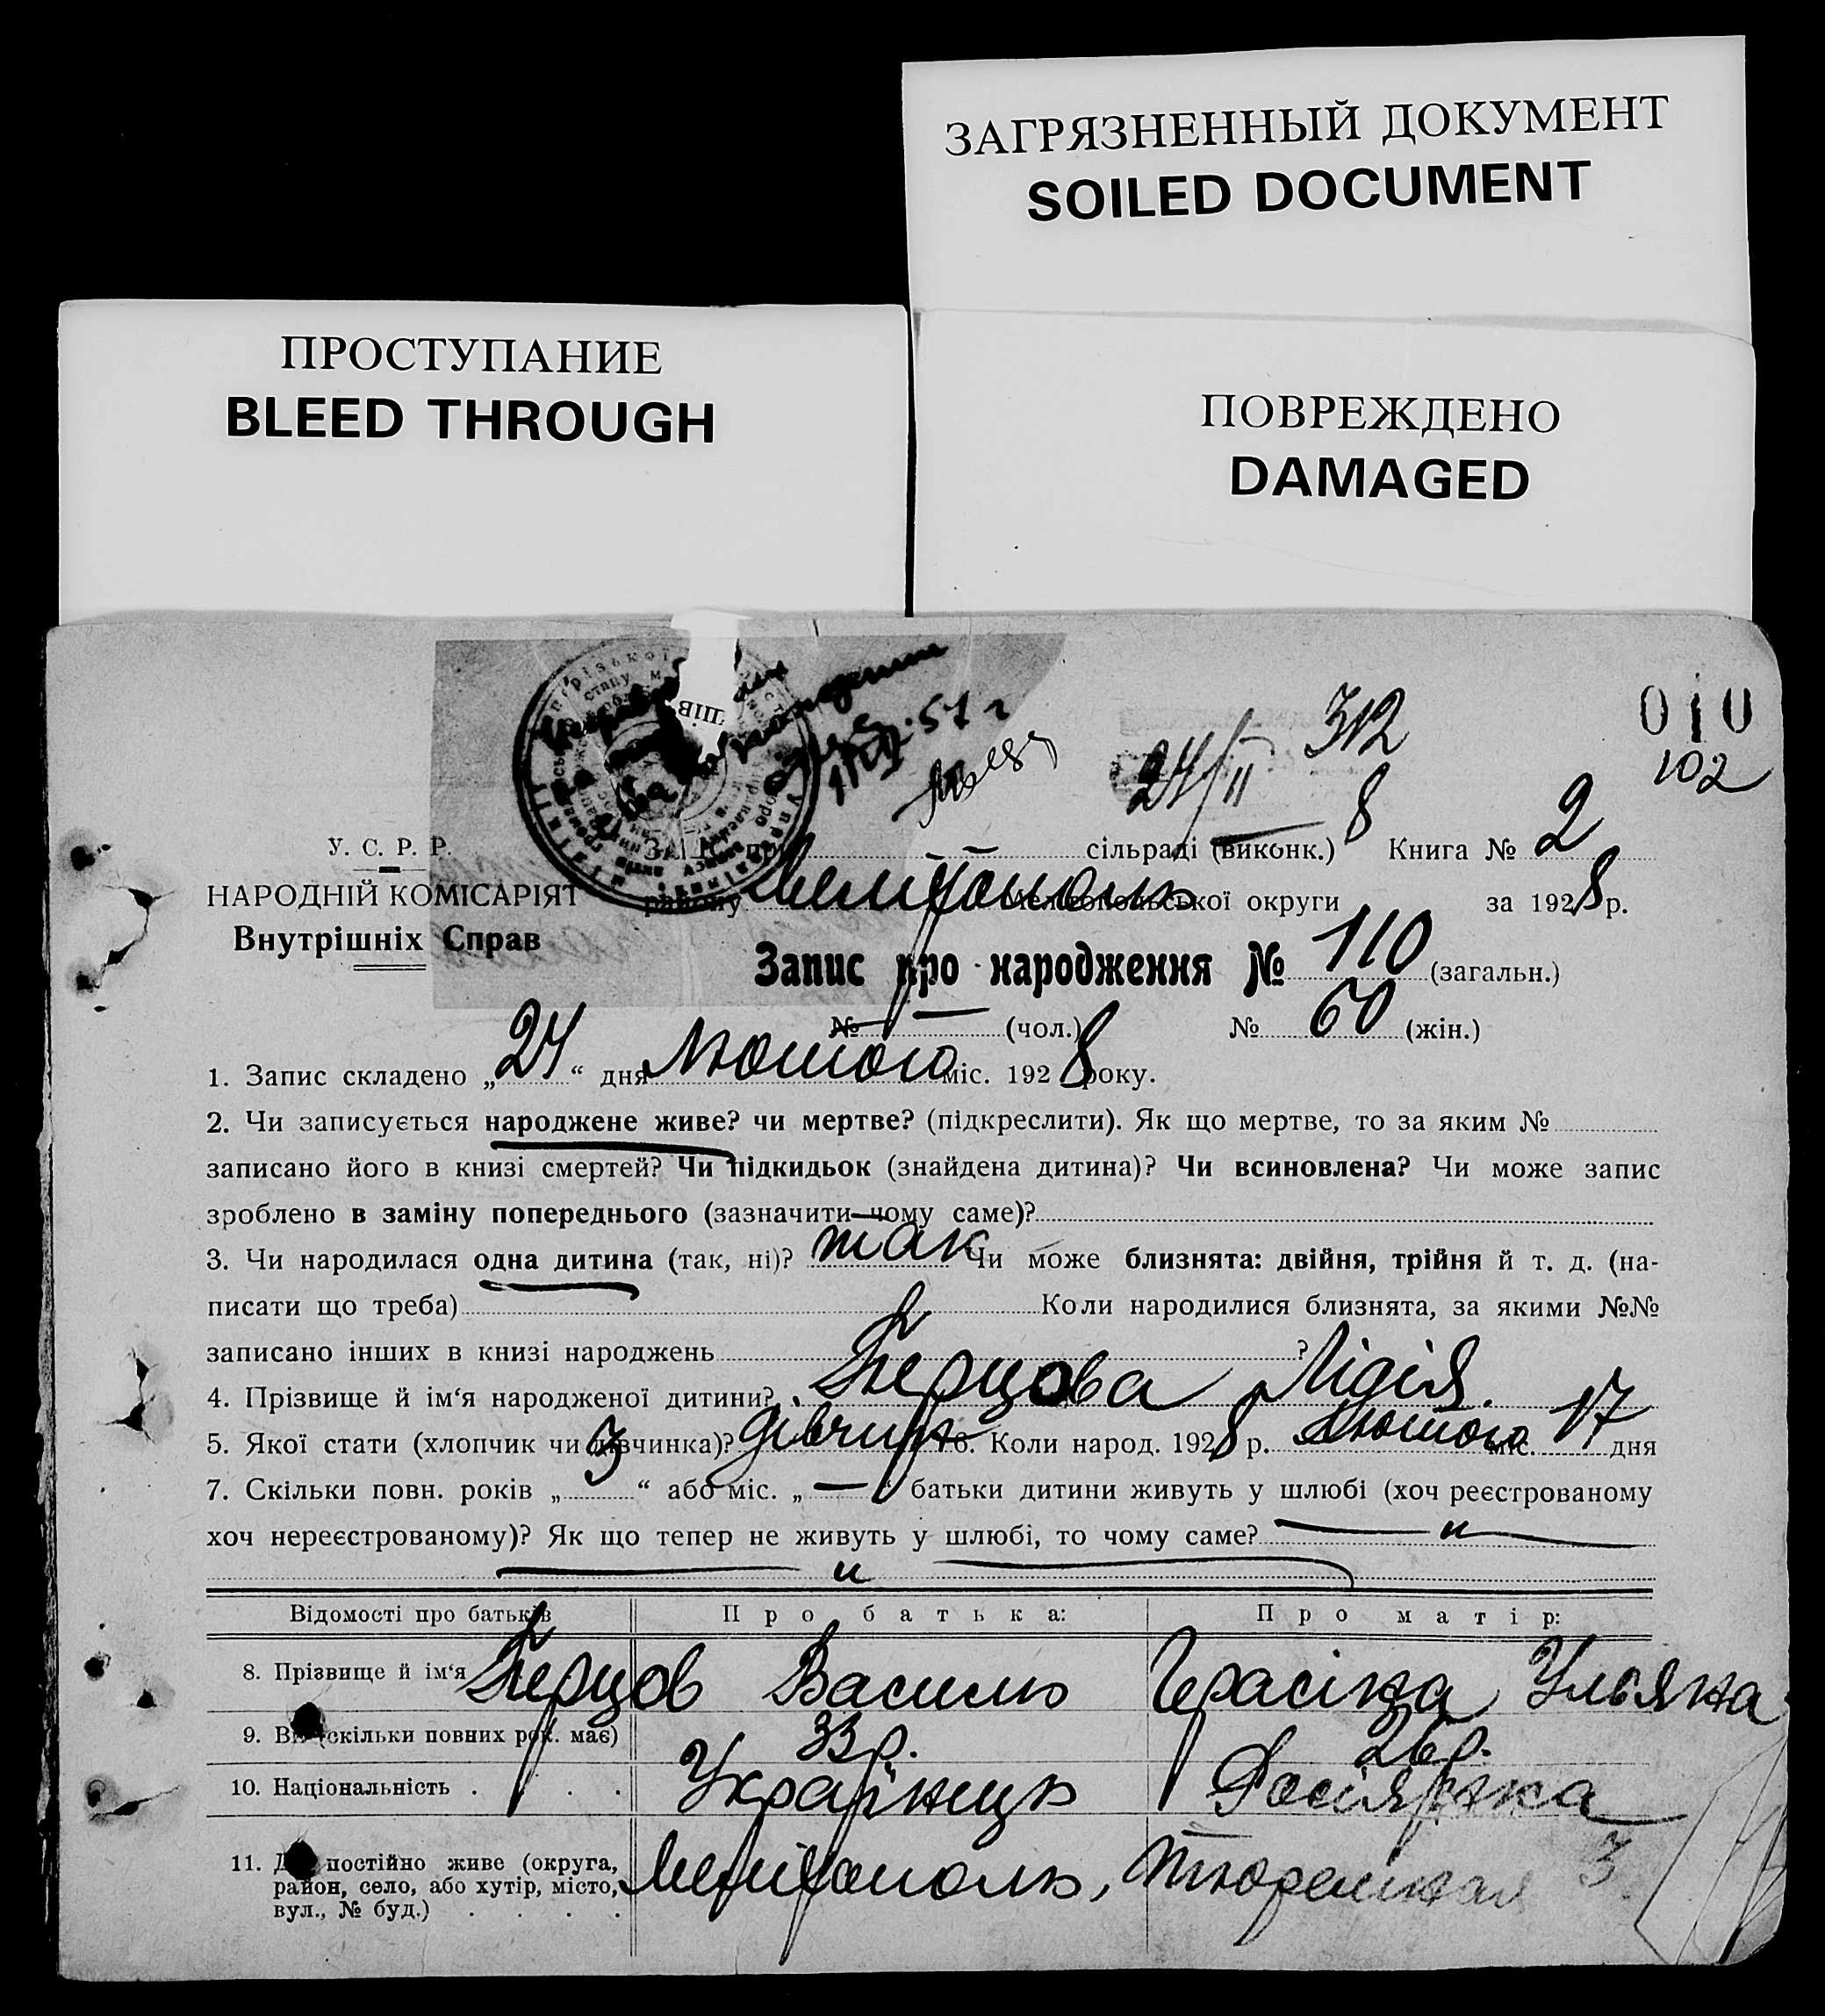 ЗАГРЯЗНЕННЫЙ ДОКУМЕНТ
SOILED DOCUMENT
ПРОСТУПАНИЕ
BLEED THROUGH
ПОВРЕЖДЕНО
DAMAGED
312
010
102
24/II 8
У. С. Р. Р.
ЗАГС при сільраді (виконк.) Книга № 2
НАРОДНІЙ КОМІСАРІЯТ
району Мелітополь Мелітопольської округи за 1928 р.
Внутрішніх Справ
Запис про народження № 110 (загальн.)
№ — (чол.) № 60 (жін.)
1. Запис складено „24“ дня Лютого міс. 1928 року.
2. Чи записується народжене живе? чи мертве? (підкреслити). Як що мертве, то за яким №
записано його в книзі смертей? Чи підкидьок (знайдена дитина)? Чи всиновлена? Чи може запис
зроблено в заміну попереднього (зазначити чому саме)?
3. Чи народилася одна дитина (так, ні)? так Чи може близнята: двійня, трійня й т. д. (на-
писати що треба) Коли народилися близнята, за якими №№
записано інших в книзі народжень ?
4. Прізвище й ім‘я народженої дитини? Перцова Лідія.
5. Якої стати (хлопчик чи дівчинка)? дівчина 6. Коли народ. 1928 р. Лютого міс. 17 дня
7. Скільки повн. років „3“ або міс. „—“ батьки дитини живуть у шлюбі (хоч реєстрованому
хоч нереєстрованому)? Як що тепер не живуть у шлюбі, то чому саме? — „ —
— „ —
Відомості про батьків Про батька: Про матір:
8. Прізвище й ім‘я Перцов Василь Герасіна Ульяна
9. Вік (скільки повних рок. має) 33 р. 26 р.
10. Національність . . . . Українець Росіянка
11. Де постійно живе (округа,
район, село, або хутір, місто,
вул., № буд.) . . . . Мелітополь, Тюремная 3.